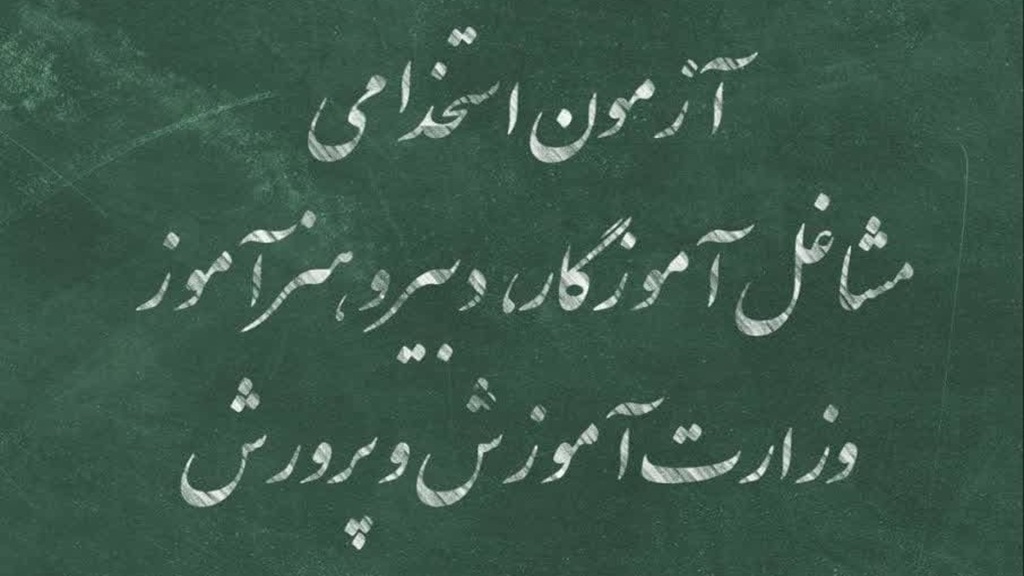 آزمون استخدامی
مشاغل آموزگار، دبیر و هنرآموز
وزارت آموزش و پرورش